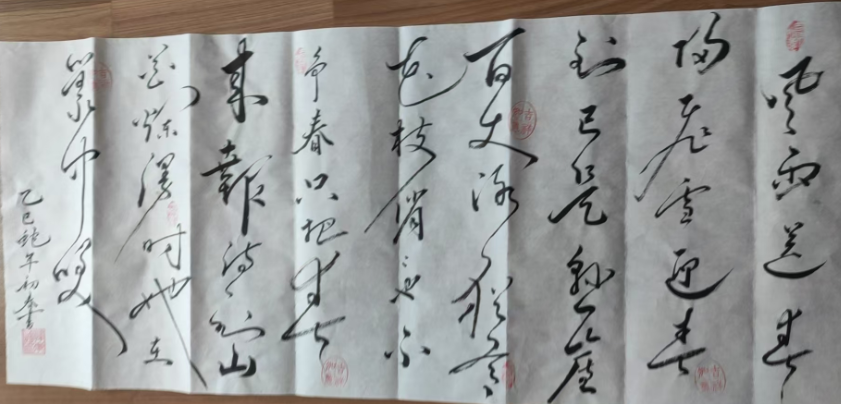 风雨送春
归飞雪迎春
到已是悬崖
百丈冰犹有
花枝俏也不
争春只把春
来報待到山
花烂漫时她在
丛中笑
乙巳蛇年初